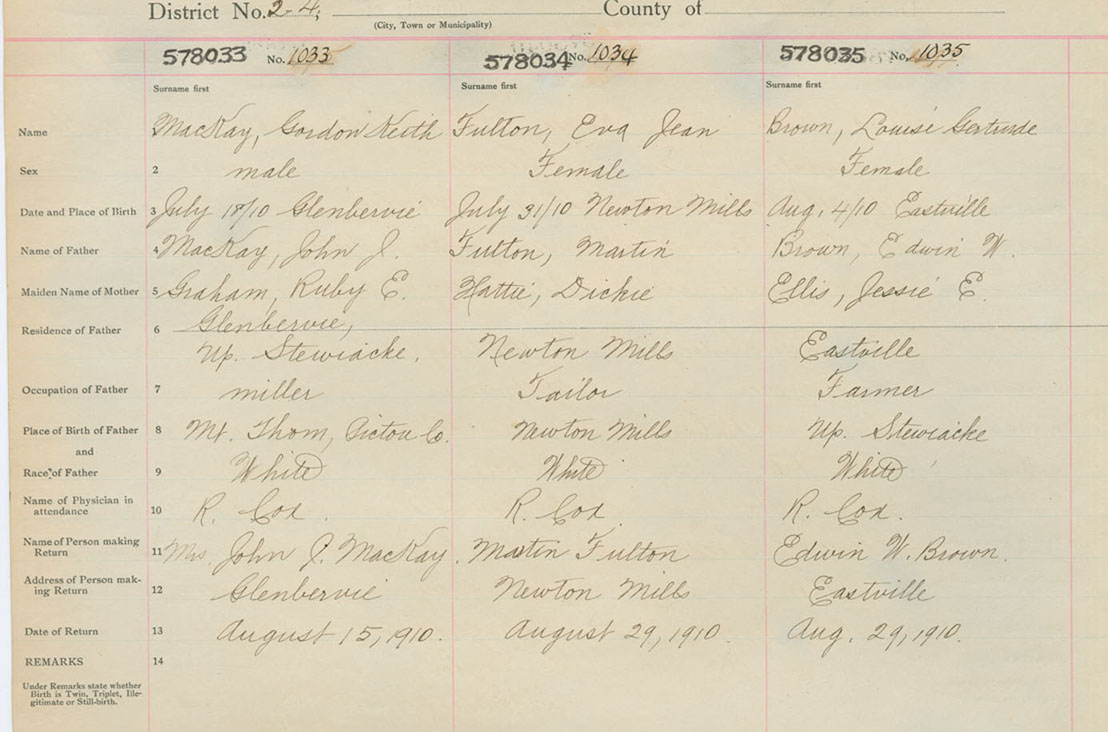 District No. 2-4; County of
(City, Town or Municipality)
578033 No. 1033 578034 No. 1034 578035 No. 1035
Surname first Surname first Surname first
Name MacKay, Gordon Keith Fulton, Eva Jean Brown, Louise Gertrude
Sex 2 male Female Female
Date and Place of Birth 3 July 18/10 Glenbervie July 31/10 Newton Mills Aug. 4/10 Eastville
Name of Father 4 MacKay, John J. Fulton, Martin Brown, Edwin W.
Maiden Name of Mother 5 Graham, Ruby E. Hattie, Dickie Ellis, Jessie E.
Residence of Father 6 Glenbervie,
Up. Stewiacke. Newton Mills Eastville
Occupation of Father 7 miller Tailor Farmer
Place of Birth of Father 8 Mt. Thom, Pictou Co. Newton Mills Up. Stewiacke
and
Race of Father 9 White White White
Name of Physician in
attendance 10 R. Cox. R. Cox. R. Cox.
Name of Person making
Return 11 Mrs. John J. MacKay. Martin Fulton Edwin W. Brown.
Address of Person mak-
ing Return 12 Glenbervie Newton Mills Eastville
Date of Return 13 August 15, 1910. August 29, 1910. Aug. 29, 1910.
REMARKS 14
Under Remarks state whether
Birth is Twin, Triplet, Ille-
gitimate or Still-birth.